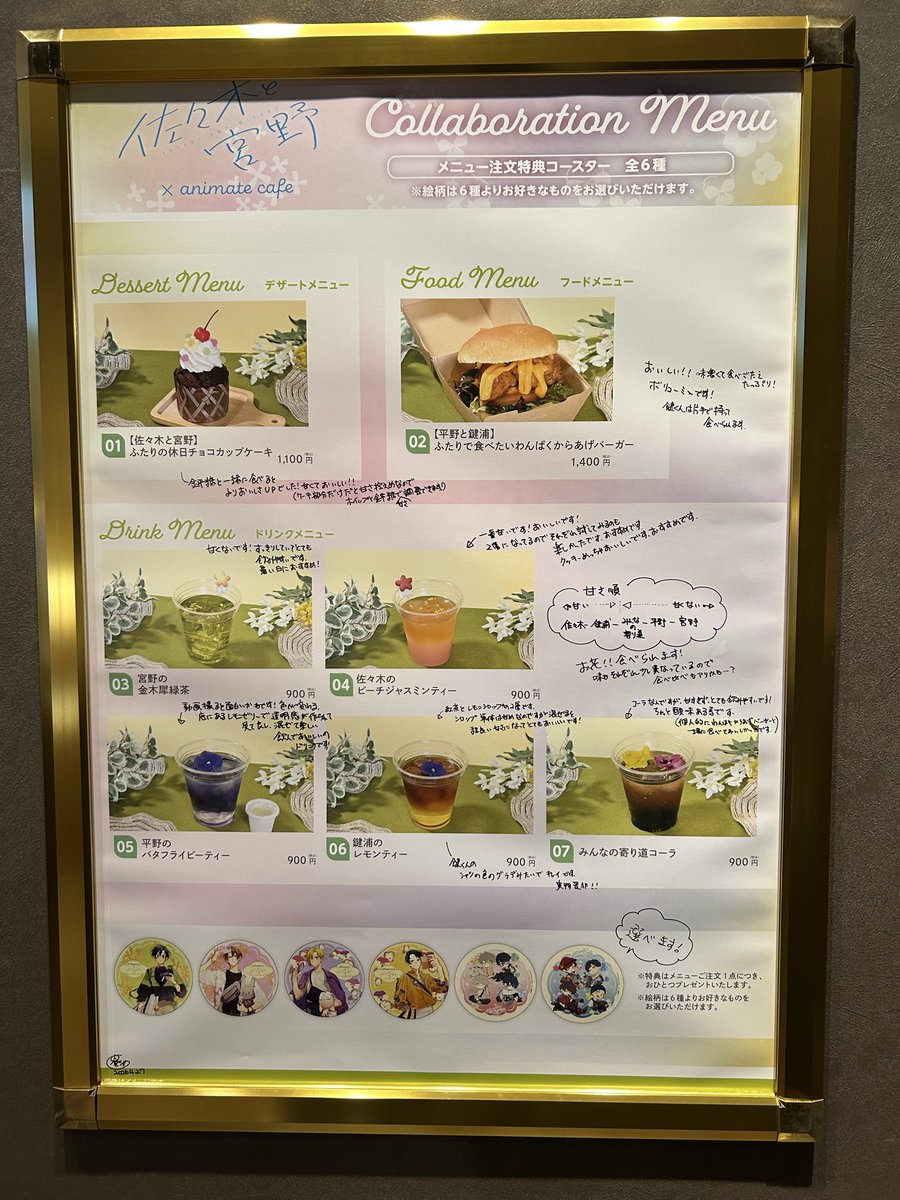 佐々木と
宮野
× animate cafe
Collaboration Menu
メニュー注文特典コースター 全6種
※絵柄は6種よりお好きなものをお選びいただけます。
Dessert Menu デザートメニュー
01 【佐々木と宮野】
ふたりの休日チョコカップケーキ 1,100円(税込)
金平糖と一緒に食べると
よりおいしさUPでした!甘くておいしい!!
(ケーキ部分だけだと甘さ控えめなので
ホイップと金平糖で調整できます!)
甘さ
Food Menu フードメニュー
02 【平野と鍵浦】
ふたりで食べたいわんぱくからあげバーガー
1,400円(税込)
おいしい!! 味濃くて食べごたえ
たっぷり!
ボリューミーです!
鍵くんは片手で持って
食べられます。
Drink Menu ドリンクメニュー
甘くないです!すっきりしていてとても
飲みやすいです。
暑い日におすすめ!
03 宮野の
金木犀緑茶 900円(税込)
一番甘いです!おいしいです!
2層になってるのでそれぞれ試してみるのも
楽しかったです。おすすめです。
クッキーめっちゃおいしいです。おすすめです。
04 佐々木の
ピーチジャスミンティー 900円(税込)
甘さ順
甘い 甘くない
佐々木-鍵浦-みんなの寄り道-平野-宮野
お花!!食べられます!
味もそれぞれ少し異なっているので
食べ比べもアリかも…?
動画撮ると面白いかもです!色が変わる。
底にあるレモンゼリーで透明感が作られて
見て楽し、混ぜて楽しい
飲んでおいしいの
ドリンクです!
05 平野の
バタフライピーティー 900円(税込)
紅茶とレモンシロップの2層です。
シロップ単体は甘めなのですが混ぜると
程良い甘さになってとてもおいしいです!
06 鍵浦の
レモンティー 900円(税込)
鍵くんの
シャツの色のグラデみたいでキレイです。
実物是非!!
コーラなんですが、甘すぎず、とても飲みやすいです!
ちゃんと酸味ある系です。
(個人的にわんぱくからあげバーガーと
一緒に食べてみてほしかった所です。)
07 みんなの寄り道コーラ 900円(税込)
選べます!
※特典はメニューご注文1点につき、
おひとつプレゼントいたします。
※絵柄は6種よりお好きなものを
お選びいただけます。